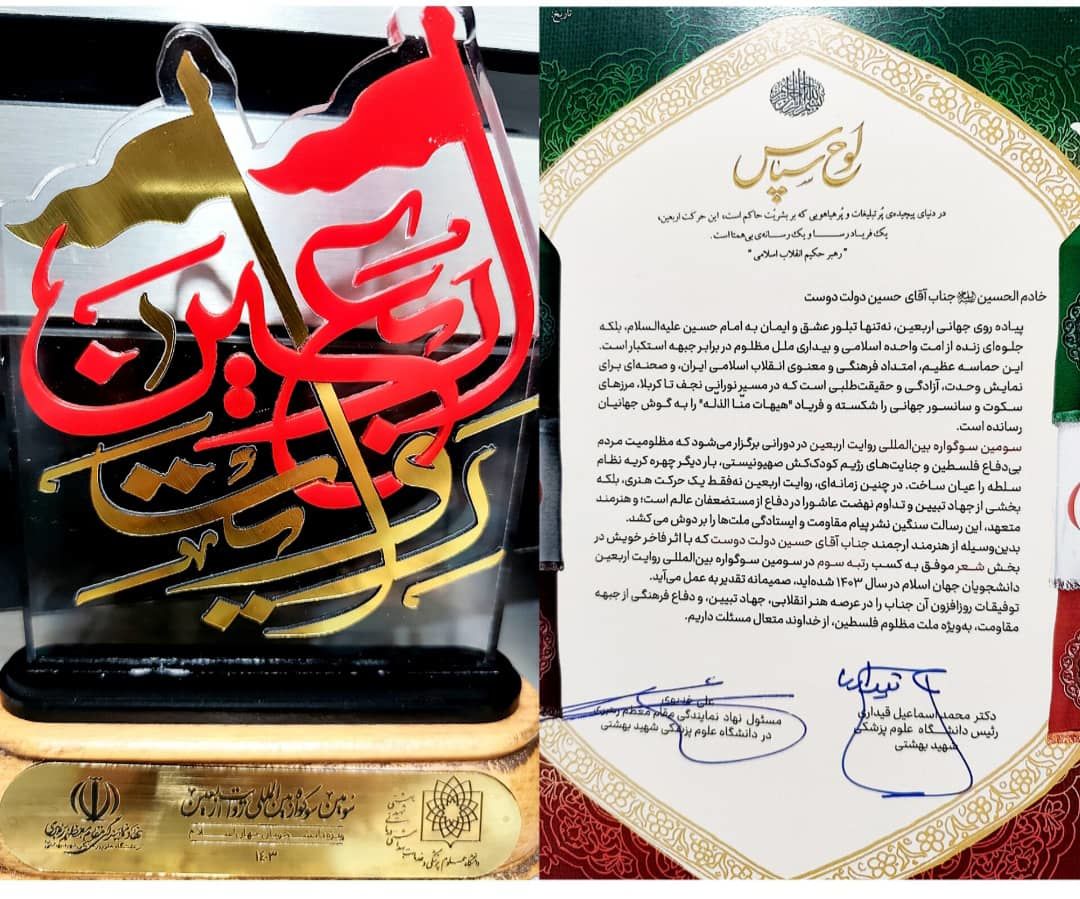 روایت
اربعین
سومین سوگواره بین‌المللی روایت اربعین
۱۴۰۳
تاریخ:
لوح سپاس
در دنیای پیچیده‌ی پُرتبلیغات و پُرهیاهویی که بر بشریّت حاکم است، این حرکت اربعین،
یک فریاد رسا و یک رسانه‌ی بی‌همتا است.
"رهبر حکیم انقلاب اسلامی"
خادم الحسین جناب آقای حسین دولت دوست
پیاده روی جهانی اربعین، نه‌تنها تبلور عشق و ایمان به امام حسین علیه‌السلام، بلکه
جلوه‌ای زنده از امت واحده اسلامی و بیداری ملل مظلوم در برابر جبهه استکبار است.
این حماسه عظیم، امتداد فرهنگی و معنوی انقلاب اسلامی ایران، و صحنه‌ای برای
نمایش وحدت، آزادگی و حقیقت‌طلبی است که در مسیر نورانی نجف تا کربلا، مرزهای
سکوت و سانسور جهانی را شکسته و فریاد "هیهات منّا الذله" را به گوش جهانیان
رسانده است.
سومین سوگواره بین‌المللی روایت اربعین در دورانی برگزار می‌شود که مظلومیت مردم
بی‌دفاع فلسطین و جنایت‌های رژیم کودک‌کش صهیونیستی، بار دیگر چهره کریه نظام
سلطه را عیان ساخت. در چنین زمانه‌ای، روایت اربعین نه‌فقط یک حرکت هنری، بلکه
بخشی از جهاد تبیین و تداوم نهضت عاشورا در دفاع از مستضعفان عالم است؛ و هنرمند
متعهد، این رسالت سنگین نشر پیام مقاومت و ایستادگی ملت‌ها را بر دوش می‌کشد.
بدین‌وسیله از هنرمند ارجمند جناب آقای حسین دولت دوست که با اثر فاخر خویش در
بخش شعر موفق به کسب رتبه سوم در سومین سوگواره بین‌المللی روایت اربعین
دانشجویان جهان اسلام در سال ۱۴۰۳ شده‌اید، صمیمانه تقدیر به عمل می‌آید.
توفیقات روزافزون آن جناب را در عرصه هنر انقلابی، جهاد تبیین، و دفاع فرهنگی از جبهه
مقاومت، به‌ویژه ملت مظلوم فلسطین، از خداوند متعال مسئلت داریم.
علی
مسئول نهاد نمایندگی مقام معظم رهبری
در دانشگاه علوم پزشکی شهید بهشتی
دکتر محمد اسماعیل قیداری
رئیس دانشگاه علوم پزشکی
شهید بهشتی